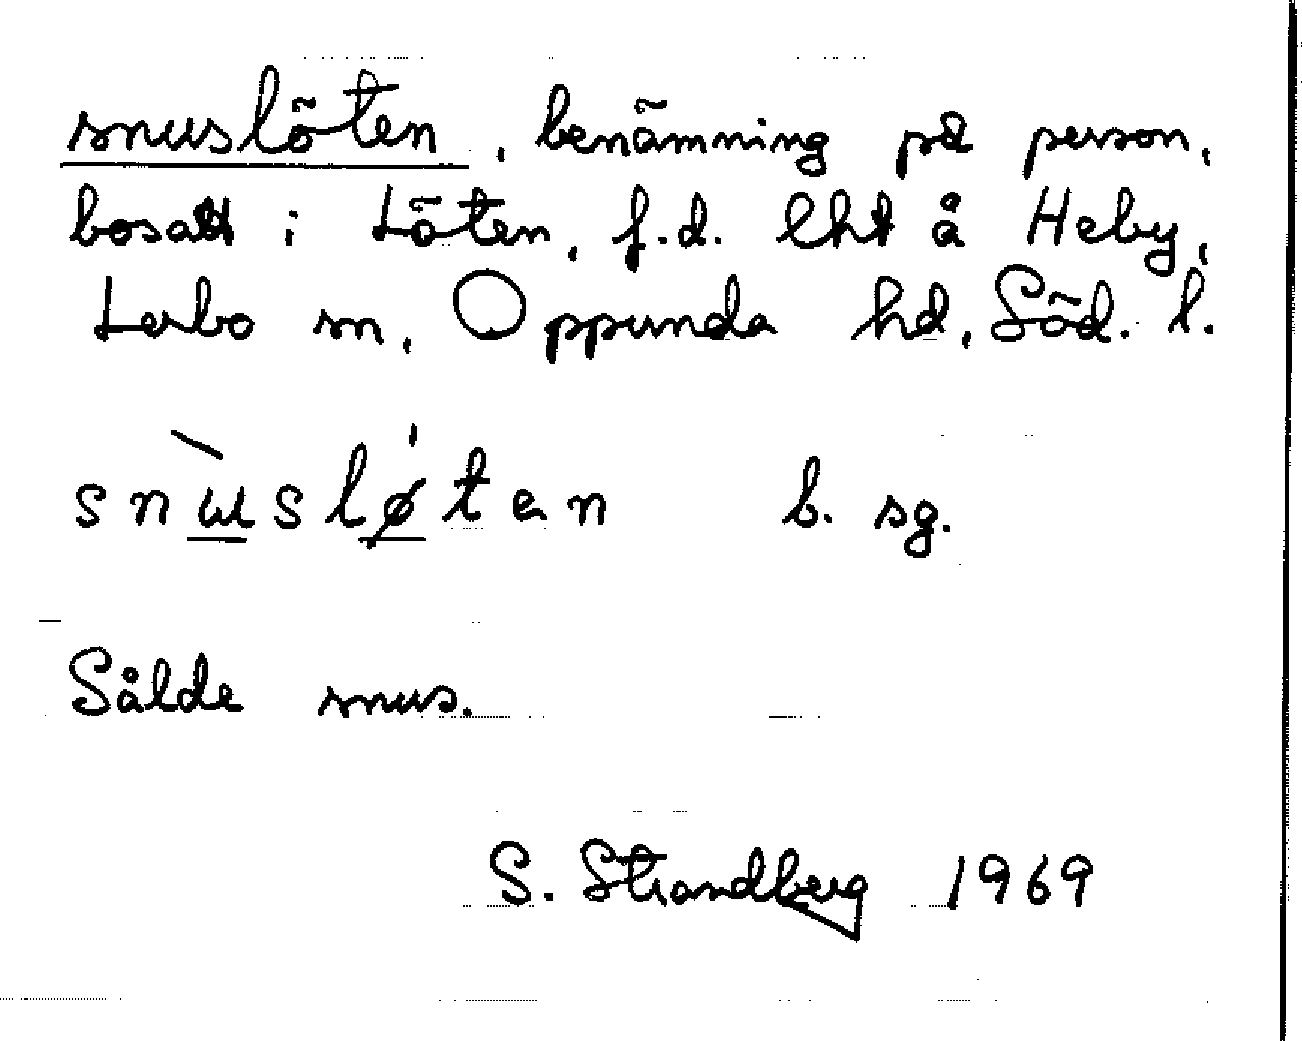 snuslöten, benämning på person,
bosatt i Löten, f.d. lht å Heby,
Lerbo sn, Oppunda hd, Söd. l.
snùsløten b. sg.
Sålde snus.
S. Strandberg 1969